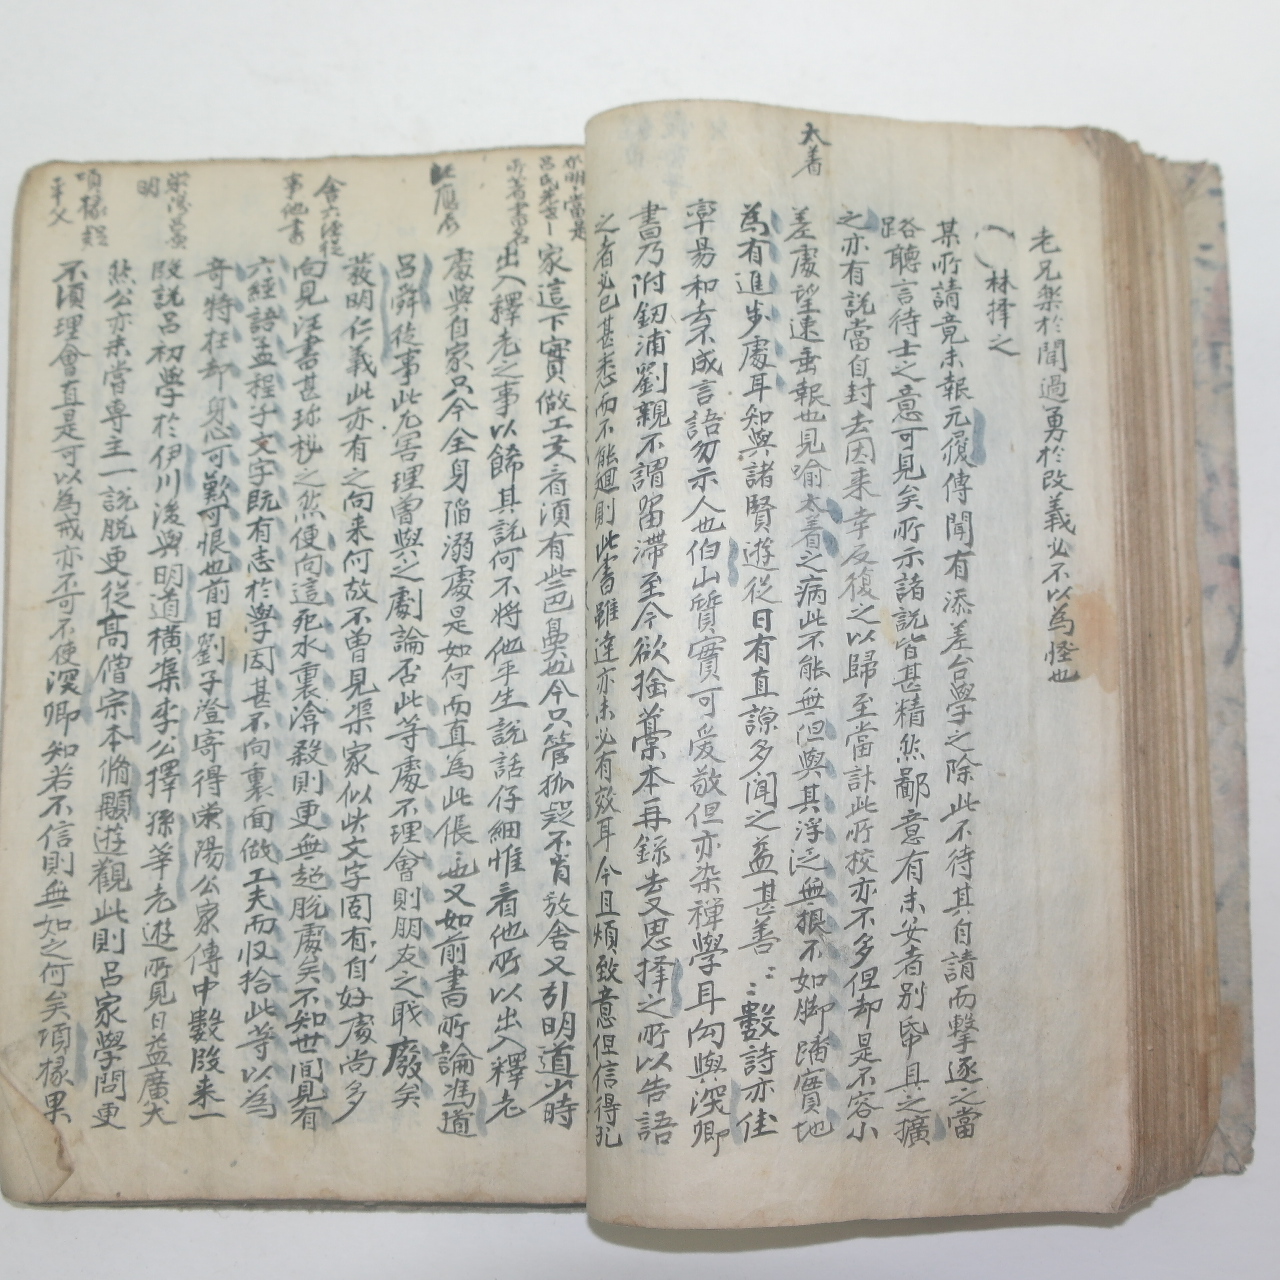 太着
老兄樂於聞過勇於改義必不以為怪也
林擇之
某所請竟未報元履傳聞有添差台學之除此不待其自請而擊逐之當
路聽言待士之意可見矣所示諸說皆甚精然鄙意有未安者別帋具之擴
之亦有說當自封去因来幸反復之以歸至當訃此所校亦不多但却是不容小
差處望速垂報也見喻太着之病此不能無但與其浮泛無根不如脚踏實地
為有進步處耳知與諸賢遊從日有直諒多聞之益甚善
數詩亦佳
章易和去不成言語勿示人也伯山質實可爱敬但亦染禪學耳向與深卿
書乃附劒浦劉親不謂留滯至今欲撿藁本再錄去又思擇之所以告語
之者必已甚悉而不能廻則此書雖達亦未必有效耳今且煩致意但信得孔
不明當是
呂氏先世
所著書名
此應
舍六經從
事他書
滎陽公
明
項㯋
平父
家這下實做工夫看須有些巴鼻也今只管孤疑不肯放舍又引明道少時
出入釋老之事以餙其說何不將他平生說話仔細惟看他所以出入釋老
處與自家只今全身陷溺處是如何而直為此倀也又如前書所論馮道
呂舜從事此尤害理曾與之劇論否此等處不理會則朋友之職廢矣
發明仁義此亦有之向来何故不曾見渠家似此文字固有自好處尚多
向見汪書甚珎秘之然便向這死水裏渰殺則更無超脫處矣不知世間見有
六經語孟程子文字既有志於學因甚不向裏面做工夫而収拾此等以為
奇特枉却身心可歎可恨也前日劉子澄寄得滎陽公家傳中數段来一
段說呂初學於伊川後與明道横渠李公擇孫莘老遊所見日益廣大
然公亦未甞專主一說脫更從高僧宗本脩顒遊觀此則呂家學問更
不湏理會直是可以為戒亦不可不使深卿知若不信則無如之何矣項㯋果